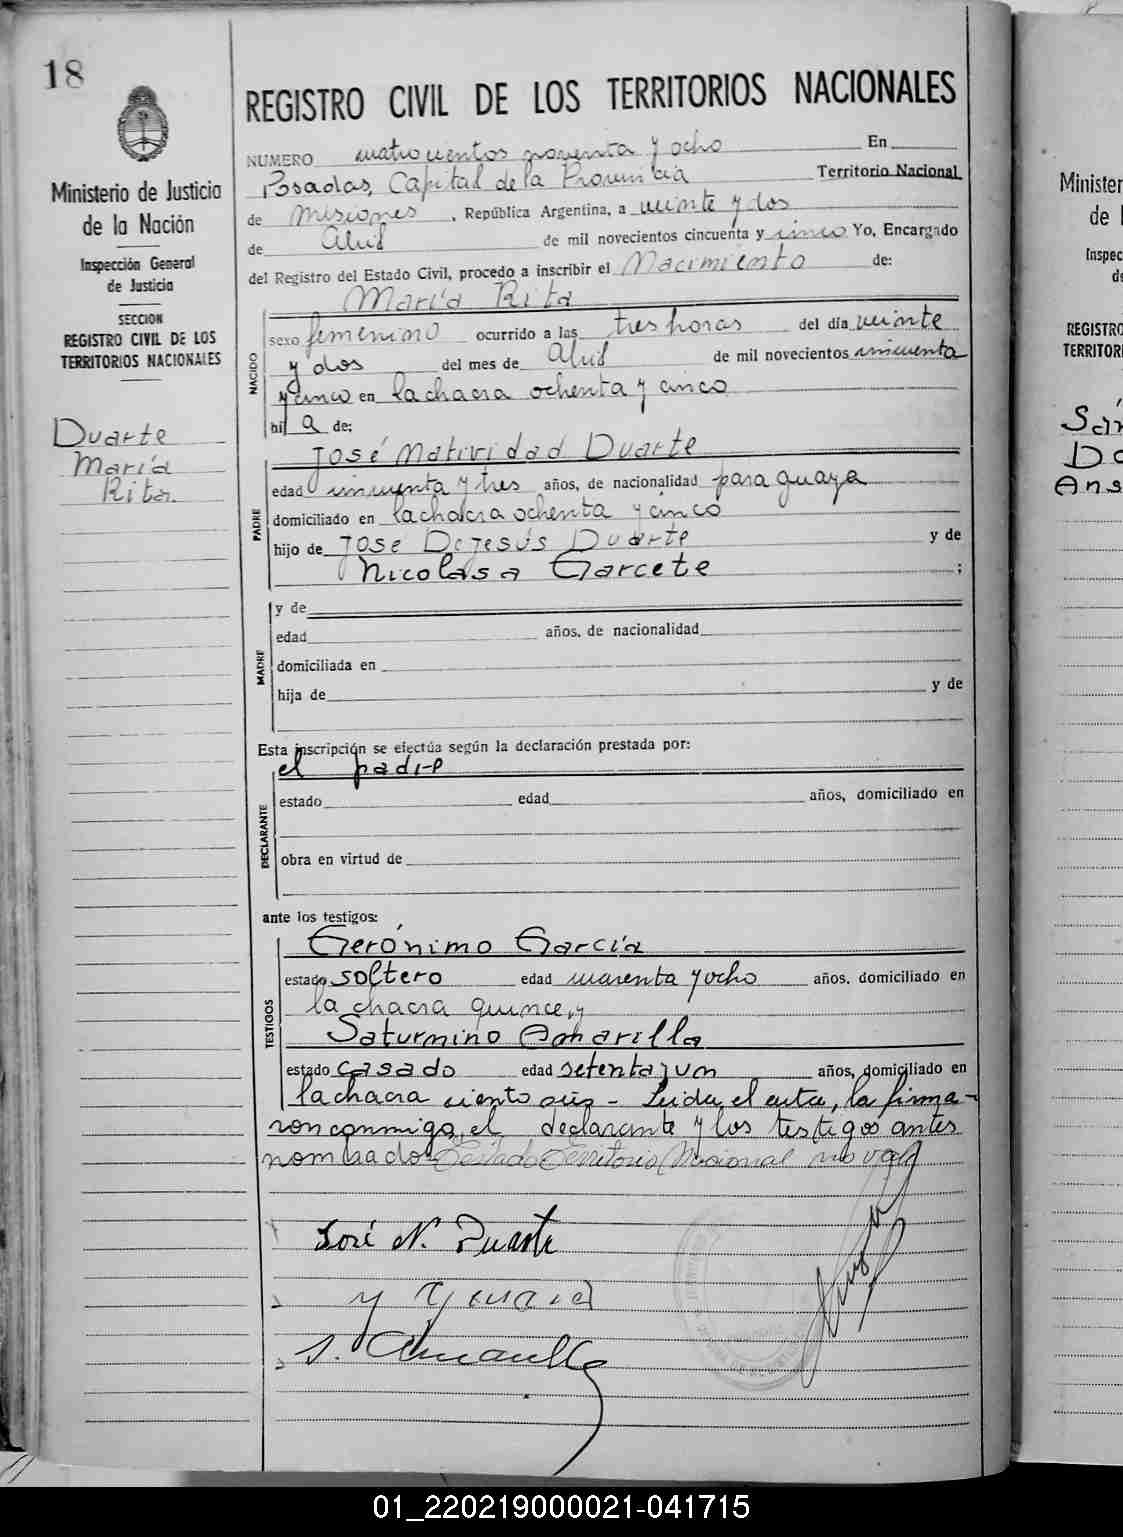 18
Ministerio de Justicia
de la Nación
Inspección General
de Justicia
SECCION
REGISTRO CIVIL DE LOS
TERRITORIOS NACIONALES
Duarte
María
Rita
REGISTRO CIVIL DE LOS TERRITORIOS NACIONALES
NUMERO cuatrocientos noventa y ocho En
Posadas, Capital de la Provincia Territorio Nacional
de misiones, República Argentina, a veinte y dos
de Abril de mil novecientos cincuenta y cinco Yo, Encargado
del Registro del Estado Civil, procedo a inscribir el Nacimiento de:
María Rita
NACIDO
sexo femenino ocurrido a las tres horas del día veinte
y dos del mes de Abril de mil novecientos cincuenta
y cinco en la chacra ochenta y cinco
hij a de:
José Natividad Duarte
PADRE
edad cincuenta y tres años, de nacionalidad paraguaya
domiciliado en la chacra ochenta y cinco
hijo de José De Jesús Duarte y de
Nicolasa Garcete ;
MADRE
y de
edad años, de nacionalidad
domiciliada en
hija de y de
Esta inscripción se efectúa según la declaración prestada por:
el padre
DECLARANTE
estado edad años, domiciliado en
obra en virtud de
ante los testigos:
Gerónimo García
TESTIGOS
estado soltero edad cuarenta y ocho años, domiciliado en
la chacra quince, y
Saturnino Amarilla
estado casado edad setenta y un años, domiciliado en
la chacra ciento seis - Leída el acta, la firma-
ron conmigo, el declarante y los testigos antes
nombrados Testado Territorio Nacional no vale
José N. Duarte
S. Amarilla
Minister
de l
Inspec
de
REGISTRO
TERRITORI
Sán
Do
Ans
01_220219000021-041715